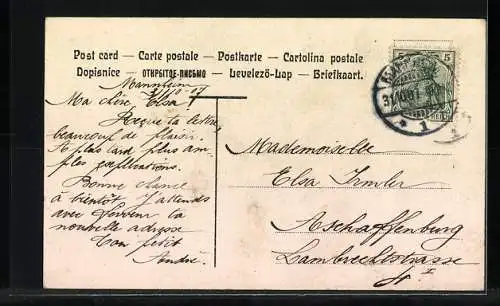 Post card — Carte postale — Postkarte — Cartolina postale
Dopisnice — ОТКРЫТОЕ ПИСЬМО — Levelező-Lap — Briefkaart.
5
Mannheim
Ma chère Elsa!
Reçue ta lettre,
beaucoup de plaisir.
A plus tard plus am-
ples explications.
Bonne chance
à bientôt J'attends
avec ta
nouvelle adresse
Ton petit
André.
Mademoiselle
Elsa Irmler
Aschaffenburg
Lambrechtstrasse
1